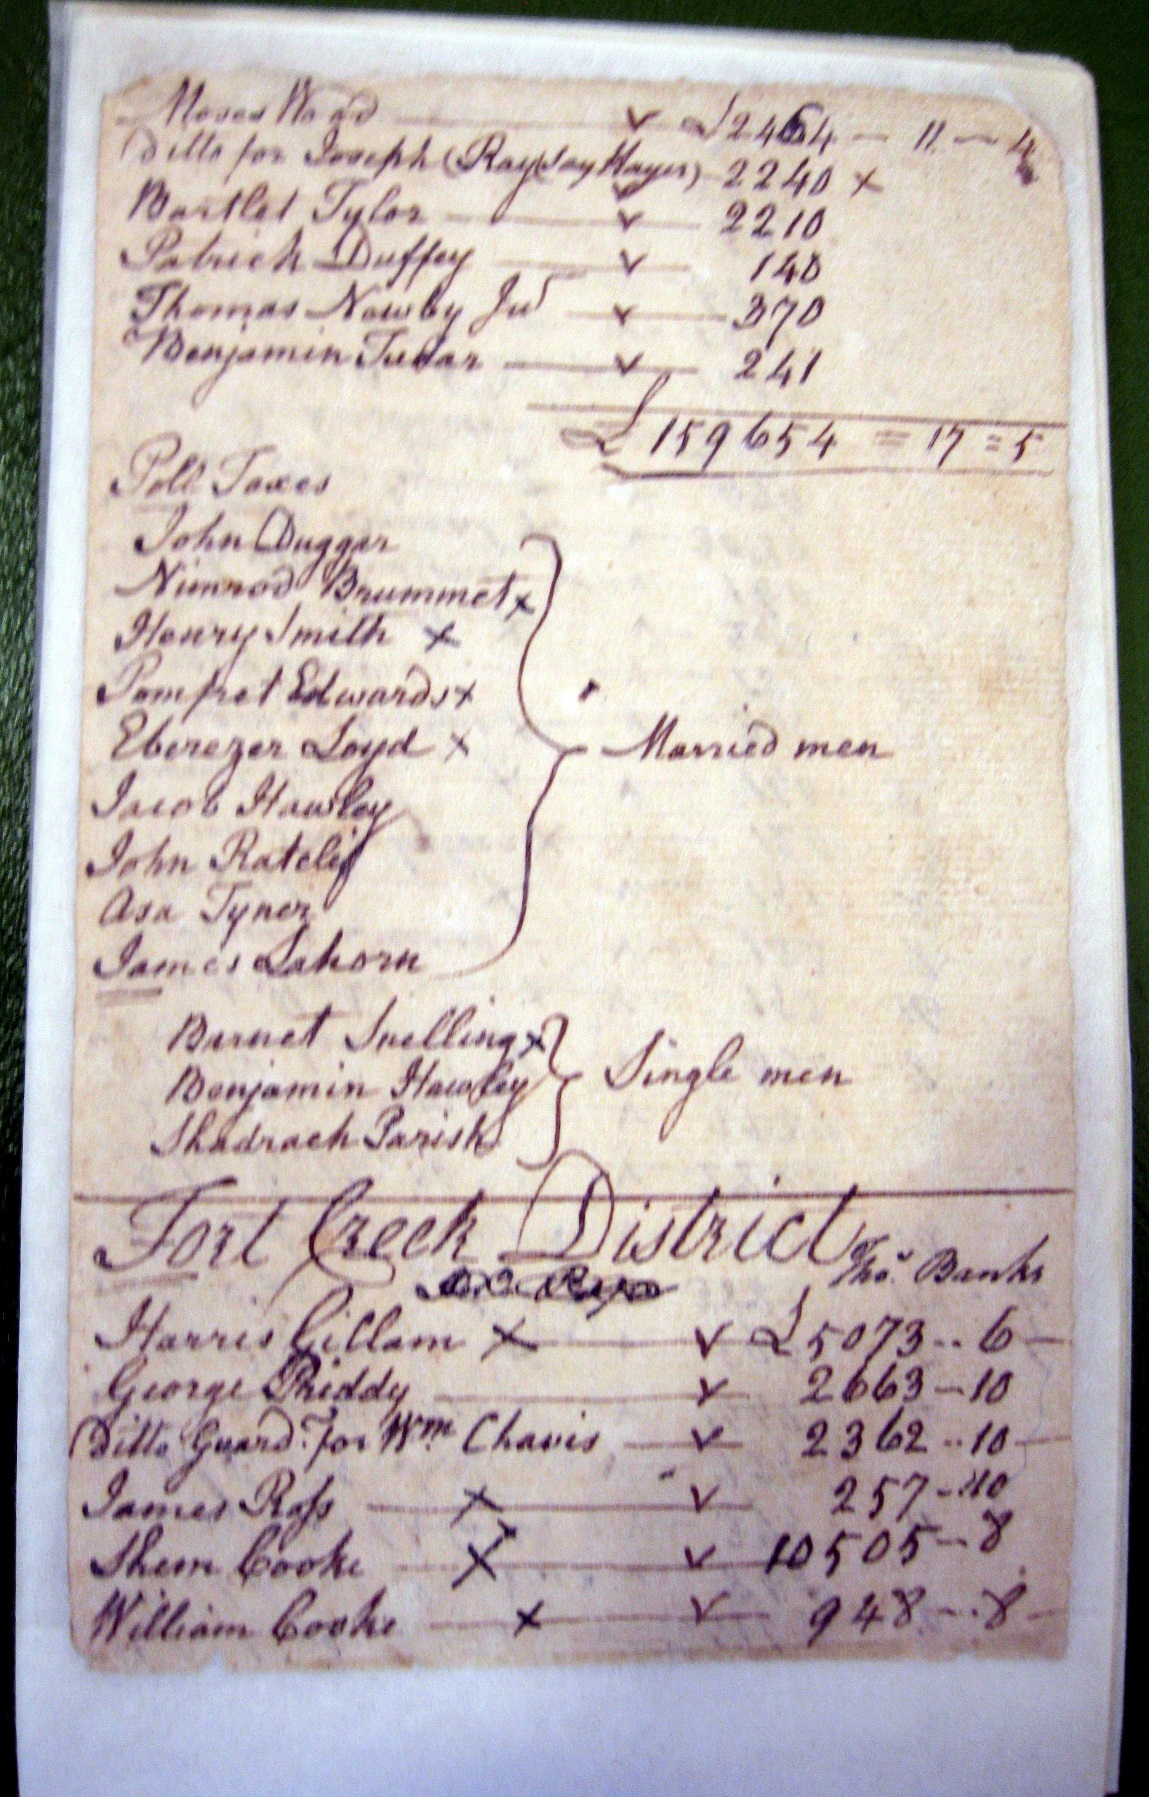 Moses Wood ✓ £2464 — 11 — 4
Ditto for Joseph (Ray (Say Hayes) 2240 ×
Bartlet Tylor ✓ 2210
Patrick Duffey ✓ 140
Thomas Newby Jur ✓ 370
Benjamin ✓ 241
£ 159654 = 17 = 5
Poll Taxes
John Duggar
Nimrod Brummet ×
Henry Smith ×
Pomfret Edwards ×
Ebenezer Loyd ×
Married men
Jacob Hawley
John Ratclif
Asa Tyner
James Lahorn
Barnet Snelling ×
Benjamin Hawley
Single men
Shadrach Parish
Fort Creek District
Tho.s Banks
Harris Gillam × ✓ £5073 .. 6
George Priddy ✓ 2663 — 10
Ditto Guard.n for Wm. Chavis ✓ 2362 .. 10
James Ross × ✓ 257 — 10
Shem Cooke × ✓ 10505 — 8
William Cooke × ✓ 948 — 8